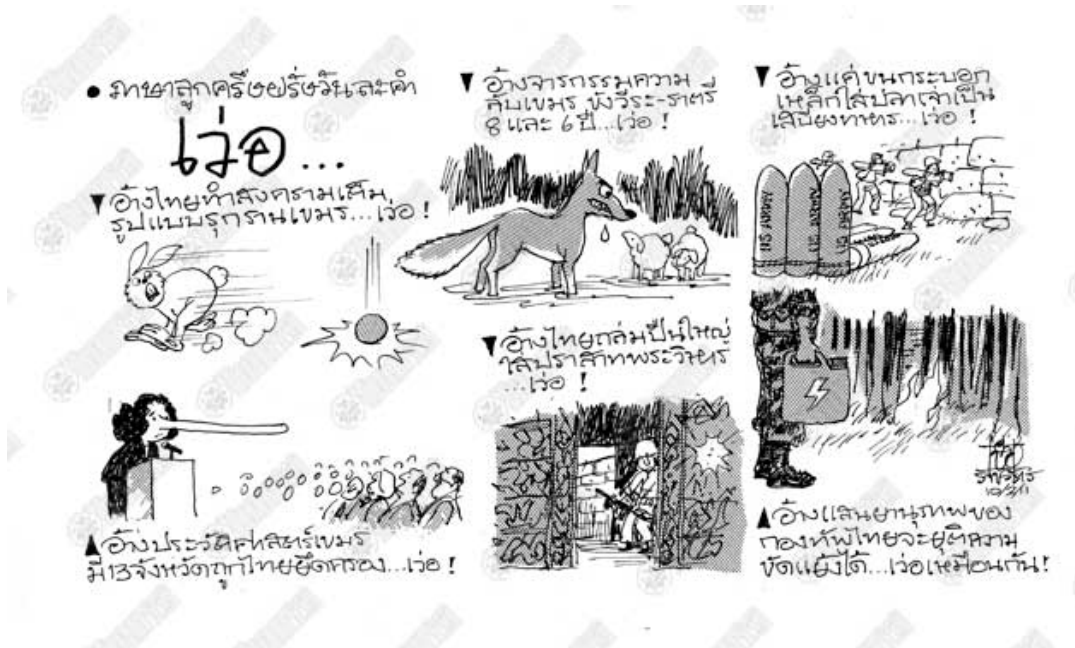 • ภาษาลูกครึ่งฝรั่งวันละคำ
เว่อ...
▼ อ้างไทยทำสงครามเต็ม
รูปแบบรุกรานเขมร...เว่อ!
▲ อ้างประวัติศาสตร์เขมร
มี 13 จังหวัดถูกไทยยึดครอง...เว่อ!
▼ อ้างจารกรรมความ
ลับเขมร ขังวีระ-ราตรี
8 และ 6 ปี...เว่อ!
▼ อ้างไทยถล่มปืนใหญ่
ใส่ปราสาทพระวิหาร
...เว่อ!
▼ อ้างแค่ขนกระบอก
เหล็กใส่ปลาเจ่าเป็น
เสบียงทหาร...เว่อ!
US ARMY
US ARMY
US ARMY
▲ อ้างแสนยานุภาพของ
กองทัพไทยจะยุติความ
ขัดแย้งได้...เว่อเหมือนกัน!